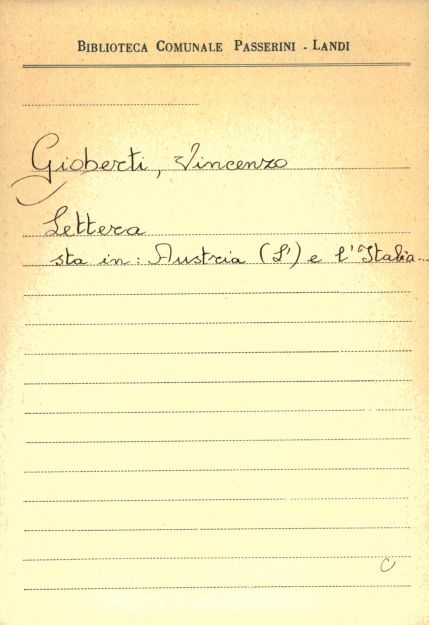 BIBLIOTECA COMUNALE PASSERINI - LANDI
Gioberti, Vincenzo
Lettera
sta in: Austria (L') e l'Italia...
C